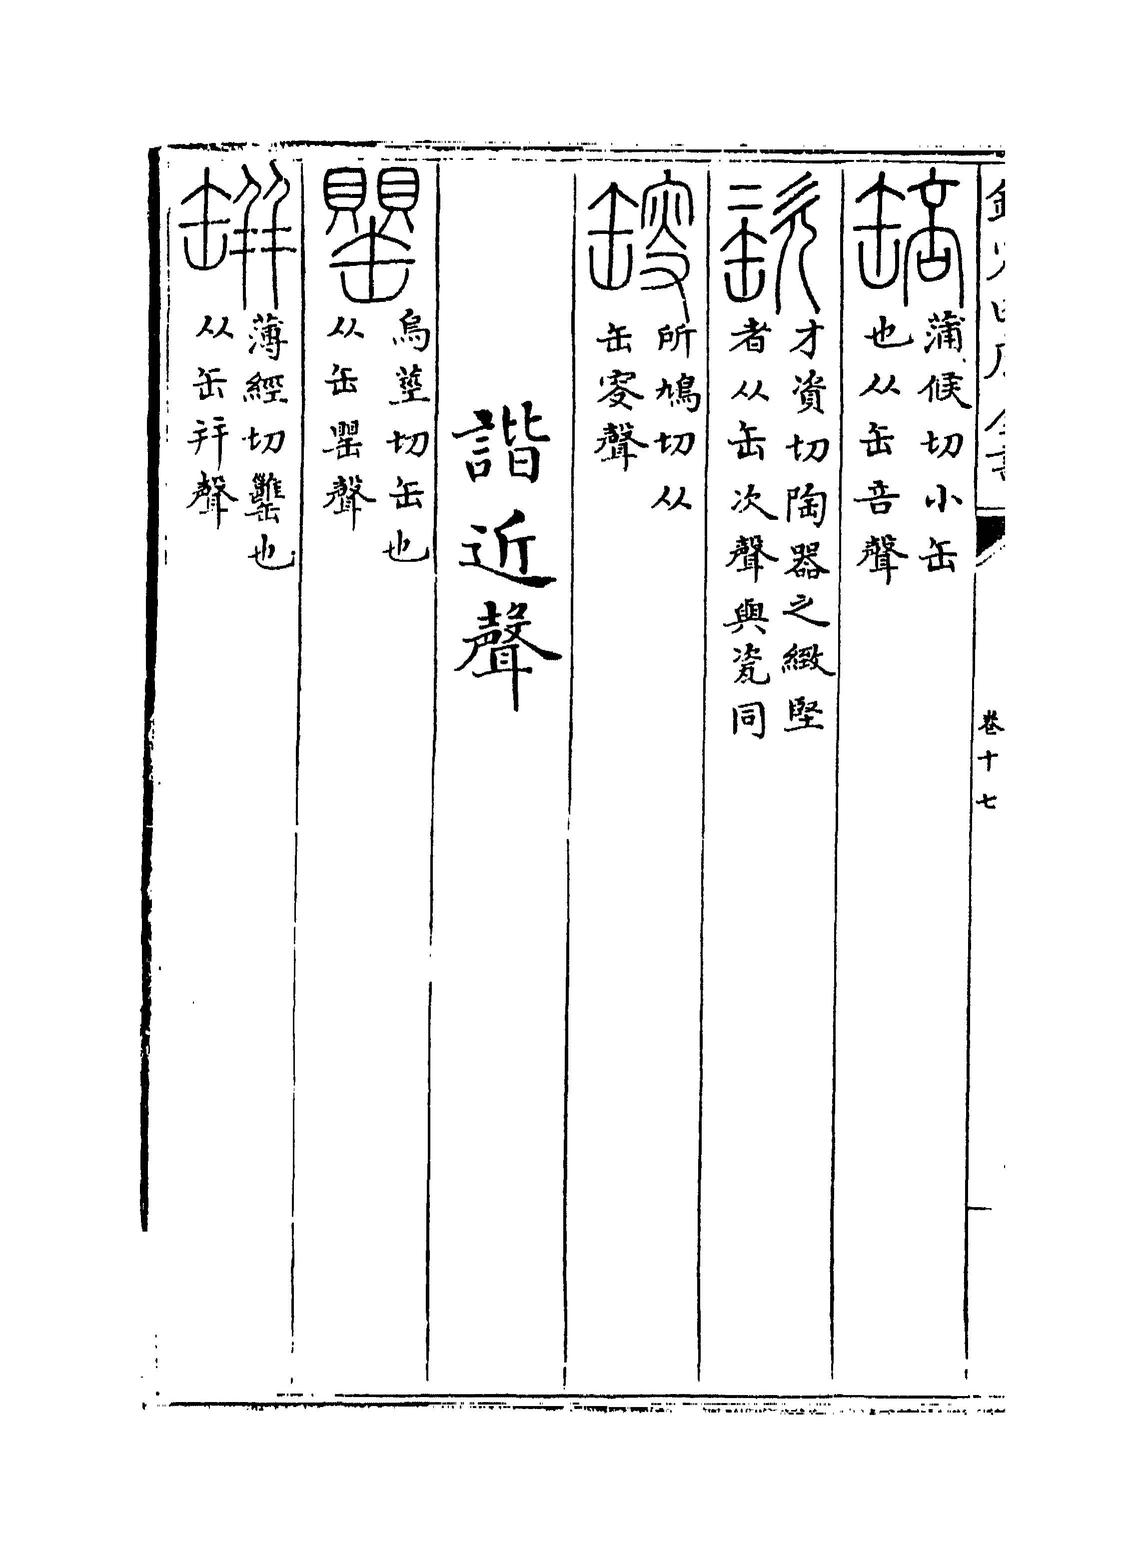 欽定四庫全書
卷十七
䍌
蒲候切小缶
也从缶咅聲
䍤
才資切陶器之緻堅
者从缶次聲與瓷同
所鳩切从
缶叜聲
諧近聲
罌
烏莖切缶也
从缶賏聲
缾
薄經切罋也
从缶幷聲